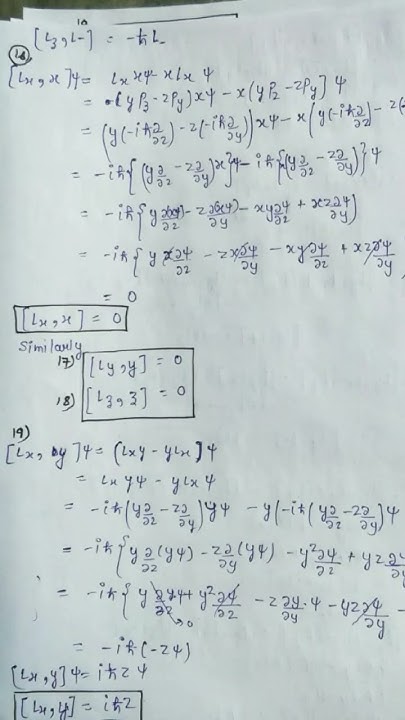 [L3, L-] = -ħL-
16)
[Lx, x]ψ = Lxxψ - xLxψ
= (yP3 - zPy)xψ - x(yPz - zPy)ψ
= (y(-iħ∂/∂z) - z(-iħ∂/∂y))xψ - x(y(-iħ∂/∂z) - z(
= -iħ{(y∂/∂z - z∂/∂y)x}ψ - iħ{(y∂/∂z - z∂/∂y)}ψ
= -iħ{y∂(xψ)/∂z - z∂(xψ)/∂y - xy∂ψ/∂z + xz∂ψ/∂y}
= -iħ{y x∂ψ/∂z - zx∂ψ/∂y - xy∂ψ/∂z + xz∂ψ/∂y
= 0
[Lx, x] = 0
Similarly
17) [Ly, y] = 0
18) [L3, 3] = 0
19)
[Lx, y]ψ = (Lxy - yLx)ψ
= Lxyψ - yLxψ
= -iħ(y∂/∂z - z∂/∂y)yψ - y(-iħ(y∂/∂z - z∂/∂y)ψ
= -iħ{y∂/∂z(yψ) - z∂/∂y(yψ) - y²∂ψ/∂z + yz∂ψ/∂y
= -iħ{y∂y/∂zψ + y²∂ψ/∂z - z∂y/∂y.ψ - yz∂ψ/∂y -
→0
= -iħ(-zψ)
[Lx, y]ψ = iħzψ
[Lx, y] = iħz